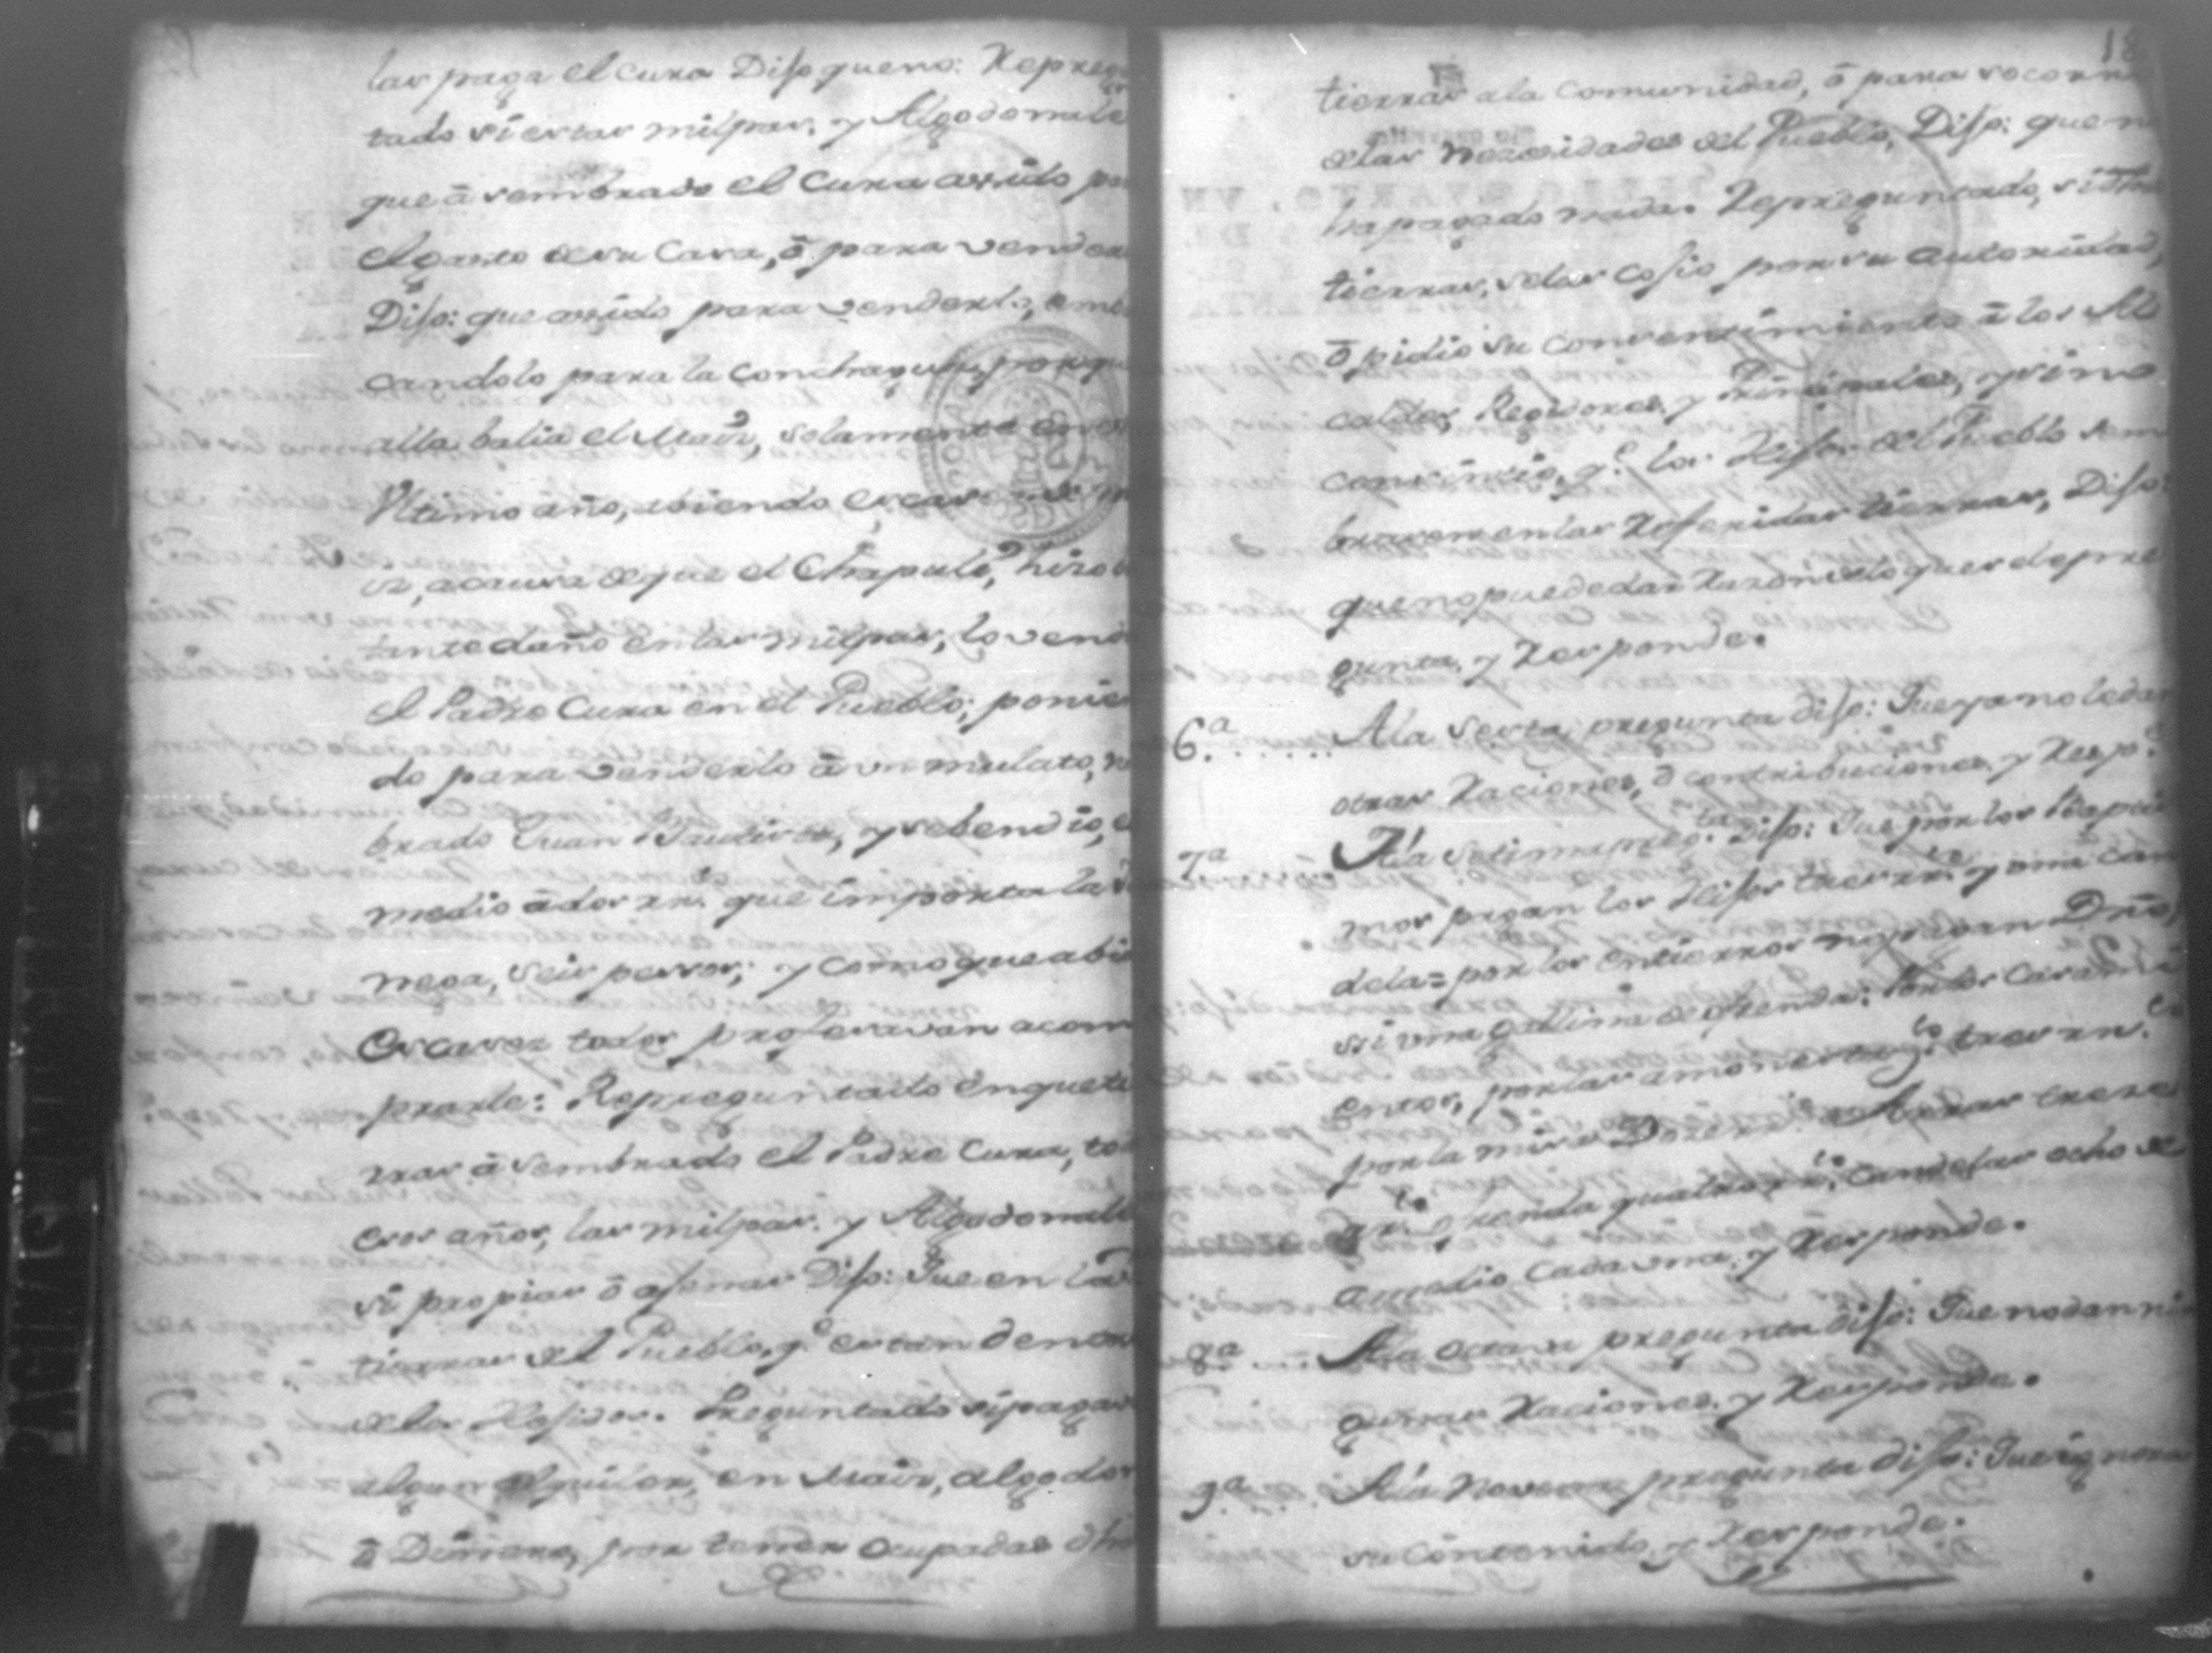 las paga el cura Dijo que no: Repregun
tado si estas milpas, y Algodonale
que â sembrado el Cura assido pa
el gasto de su Casa, ô para vender
Dijo: que assido para venderlo, emb
candolo para la Conchagua, porqu
alla balia el Maiz, solamente en es
Vltimo año, abiendo escas
is, a causa de que el Chapuli, hizo b
tante daño en las milpas, lo vend
el Padre Cura en el Pueblo; ponien
do para venderlo â un mulato, n
brado Juan Bautista, y se bendio, a
medio â dos rs. que importa la f
nega, seis pessos; y como que abi
Escases todos profesavan acom
prarle: Repreguntado en que tie
rras â sembrado el Padre Cura, to
esos años, las milpas, y Algodonale
si propias ô ajenas Dijo: Que en las
tierras del Pueblo, qe. estan dentro
de los Hejidos. Preguntado si pagava
algun alquiler, en Maiz, algodon
ô Dinero, por tener ocupadas dhas
18
tierras a la comunidad, ô para socorro
de las Necesidades del Pueblo, Dijo: que n
ha pagado nada. Repreguntado, si dhas
tierras, se las cojio por su autoridad,
ô pidio su consentimiento â los Al
caldes, Regidores, y Prinsipales, y si no
consintio, qe. los Hijos del Pueblo sem
brasen en las Referidas tierras, Dijo:
que no puede dar Razon de lo que se le pre
gunta, y Responde.
6.a ...... A la Sexta pregunta dijo: Que ya no le dan
otras Raciones, ô contribuciones, y Resp.e
7a ...... A la Setima preg.ta Dijo: Que por los Baptis
mos pagan los Hijos tres rs. y una can
dela= por los Entierros no pagan Dros,
si una gallina de ofrenda: Por los Casami
entos, por las amonestaz.es tres rs.
por la misa Doze rs. Arras treze
rs. ofrenda quatro rs. Candelas ocho de
a medio cada una, y Responde.
8a ...... A la Octava pregunta dijo: Que no dan nin
gunas Raciones, y Responde.
9a ...... A la Novena pregunta dijo: Que ignora
su Contenido, y Responde.